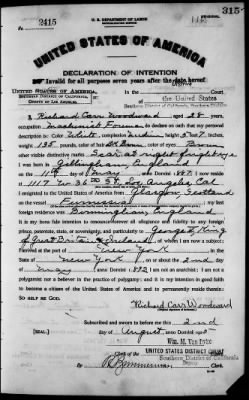 2415
U. S. DEPARTMENT OF LABOR
315
UNITED STATES OF AMERICA
DECLARATION OF INTENTION
Invalid for all purposes seven years after the date hereof
UNITED STATES OF AMERICA
In the District Court
SOUTHERN DISTRICT OF CALIFORNIA,
COUNTY OF LOS ANGELES
of the United States
I, Richard Carr Woodward, aged 28 years,
occupation Machinist, do declare on oath that my personal
description is: Color White, complexion Medium, height 5 feet 7 inches,
weight 135 pounds, color of hair Dk Brown, color of eyes Brown
other visible distinctive marks Scar at right
I was born in Gillingham, England
on the 11th day of May, anno Domini 1887; I now reside
at 1117 W. 36 St. Los Angeles, Cal.
I emigrated to the United States of America from Glasgow, Scotland
on the vessel Furnessia; my last
foreign residence was Birmingham, England
It is my bona fide intention to renounce forever all allegiance and fidelity to any foreign
prince, potentate, state, or sovereignty, and particularly to George V, King
of Great Britain & Ireland, of whom I am now a subject;
I arrived at the port of New York, in the
State of New York, on or about the 2nd day
of May, anno Domini; I am not an anarchist; I am not a
polygamist nor a believer in the practice of polygamy; and it is my intention in good faith
to become a citizen of the United States of America and to permanently reside therein:
SO HELP ME GOD.
Richard Carr Woodward
Subscribed and sworn to before me this 2nd
[SEAL] day of August, anno Domini
Wm. M. Van Dyke
Clerk of the UNITED STATES DISTRICT COURT
Southern District of California
By Deputy Clerk.